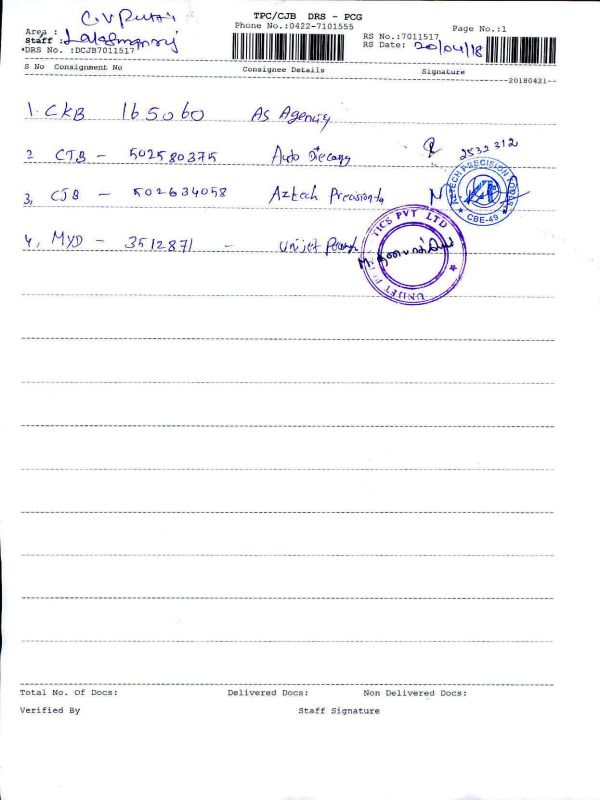 TPC/CJB DRS - PCG
Phone No.:0422-7101555
Page No.:1
Area :
RS No.:7011517
Staff :
RS Date: 20/04/18
*DRS No. :DCJB7011517
S No Consignment No Consignee Details Signature
20180421
1. CKB 165060 AS Agency
2532312
2 CTB - 502580375 Auto
3, CJB - 502634058 Aztech Precision
AZTECH PRECISION
CBE-49
4, MYD - 3512871 - Unijet
UNIJET TICS PVT LTD
Total No. Of Docs: Delivered Docs: Non Delivered Docs:
Verified By Staff Signature